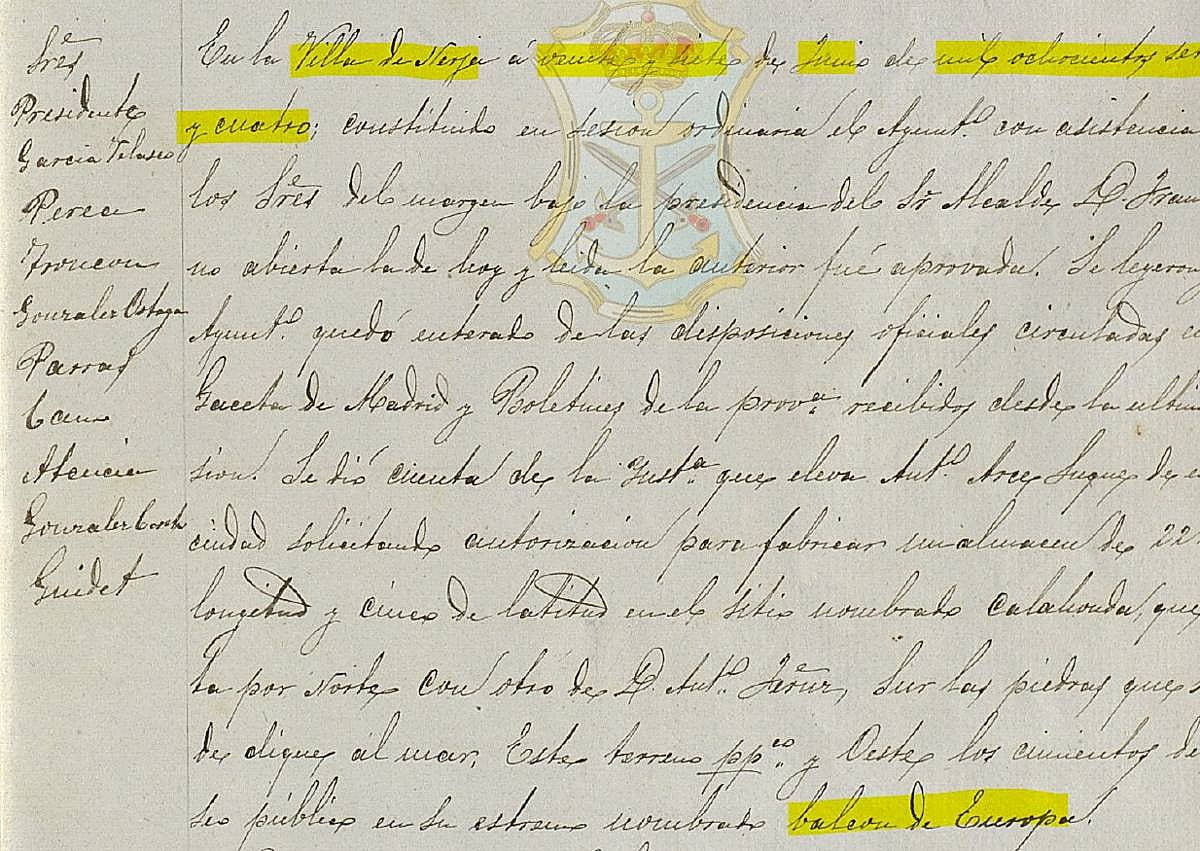 Sres
Presidente
Garcia Velasco
Perea
Troncon
Gonzalez Ortega
Parras
Cam
Atencia
Gonzalez
Guidet
En la Villa de Nerja á veinte y siete de Junio de mil ochocientos se
y cuatro; constituido en sesion ordinaria el Ayunt.º con asistencia
los Sres del margen bajo la presidencia del Sr Alcalde D. Fran
no abierta la de hoy y leida la anterior fué aprovada. Se leyeron y
Ayunt.º quedó enterado de las disposiciones oficiales circuladas
Gaceta de Madrid y Boletines de la prov.ª recibidos desde la ultim
sion. Se dió cuenta de la Inst.ª que eleva Ant.º Arce Luque de e
ciudad solicitando autorizacion para fabricar un almacen de 22
longitud y cinco de latitud en el sitio nombrado calahonda, que
ta por Norte con otro de D. Ant.º Sur las piedras que
de dique al mar; Este terreno pp.co y Oeste los cimientos de
seo público en su estremo nombrado balcon de Europa.